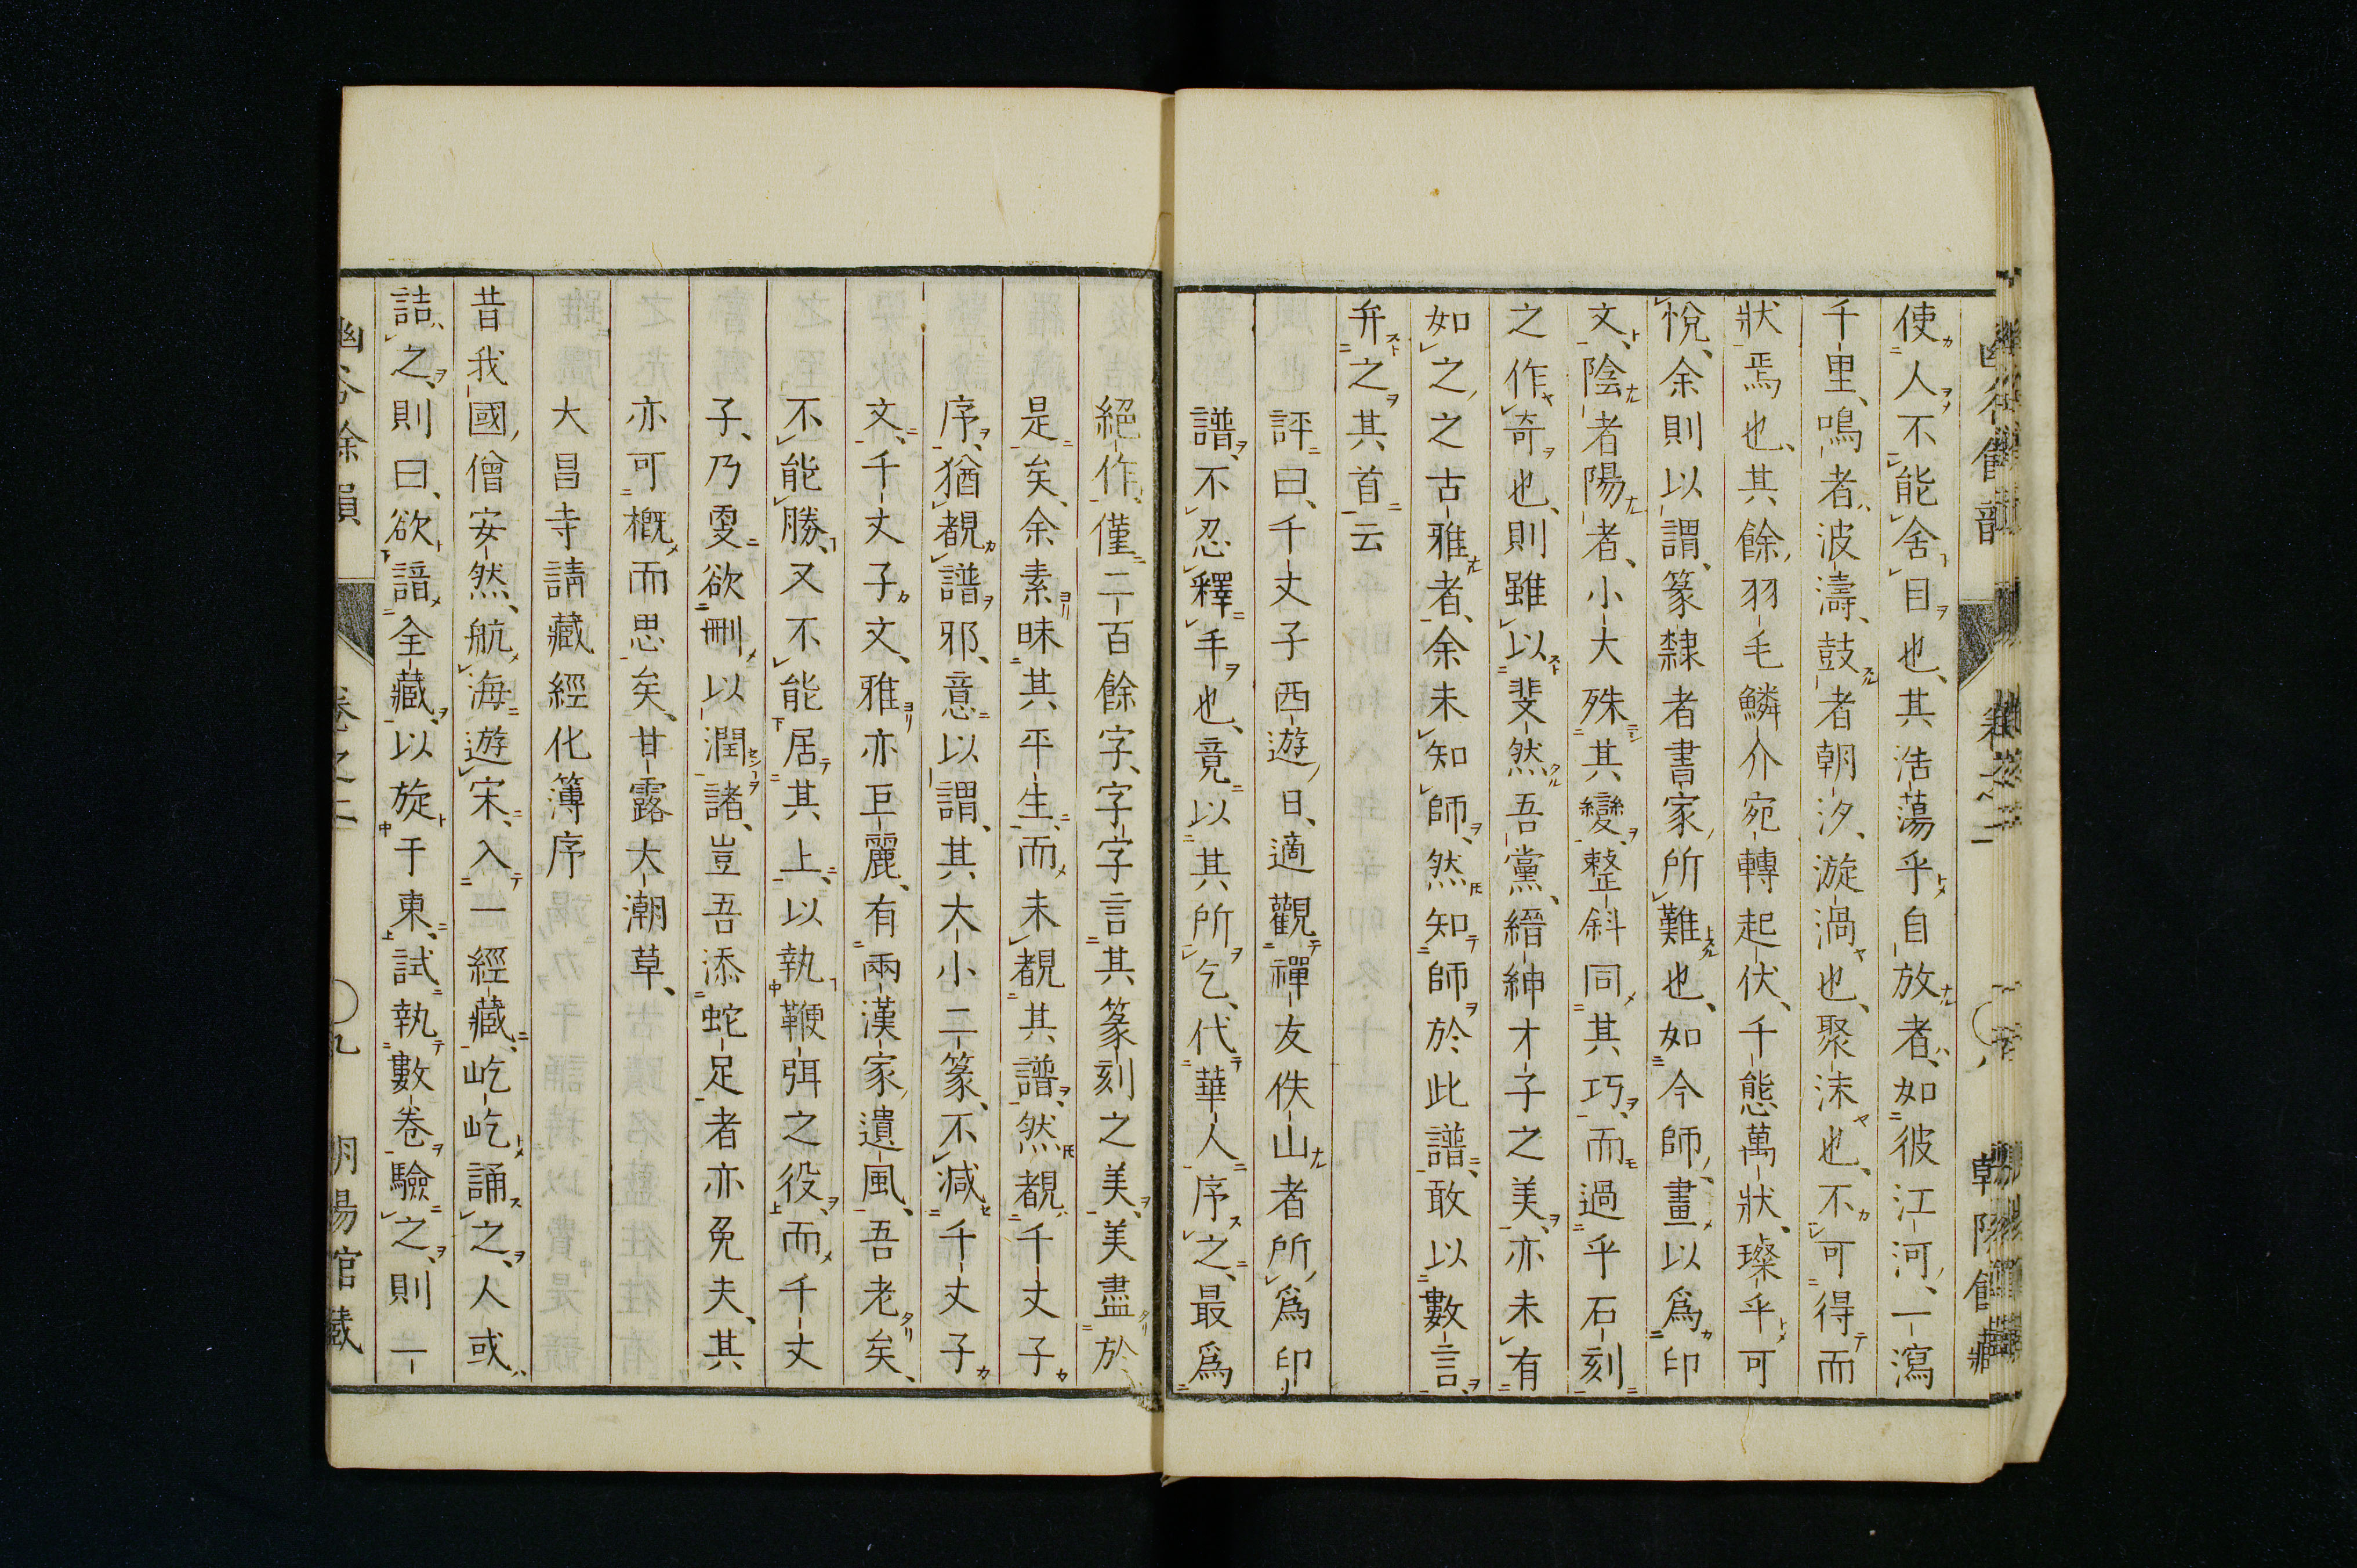 使人不能舍目也、其浩蕩乎自放者、如彼江河、一瀉
千里、鳴者波濤、鼓者朝汐、漩渦也、聚沫也、不可得而
狀焉也、其餘羽毛鱗介宛轉起伏、千態萬狀、璨乎可
悅、余則以謂、篆隸者書家所難也、如今師畫以爲印
文、陰者陽者、小大殊其變、整斜同其巧、而過乎石刻
之作奇也、則雖以斐然吾黨、縉紳才子之美、亦未有
如之之古雅者、余未知師、然知師於此譜、敢以數言
弁之其首云
評曰、千丈子西遊日、適觀禪友佚山者所爲印
譜、不忍釋手也、竟以其所乞、代華人序之、最爲
絕作、僅二百餘字、字字言其篆刻之美、美盡於
是矣、余素昧其平生、而未覩其譜、然覩千丈子
序、猶覩譜邪、意以謂、其大小二篆、不減千丈子
文、千丈子文、雅亦巨麗、有兩漢家遺風、吾老矣、
不能勝、又不能居其上、以執鞭弭之役、而千丈
子、乃雯欲刪以潤諸、豈吾添蛇足者亦免夫、其
亦可概而思矣、甘露大潮草、
大昌寺請藏經化簿序
昔我國僧安然、航海遊宋、入一經藏、屹屹誦之、人或
詰之、則曰、欲諳全藏、以旋于東、試執數卷驗之、則一
幽谷餘韻 卷之二 ○九 朝陽館藏